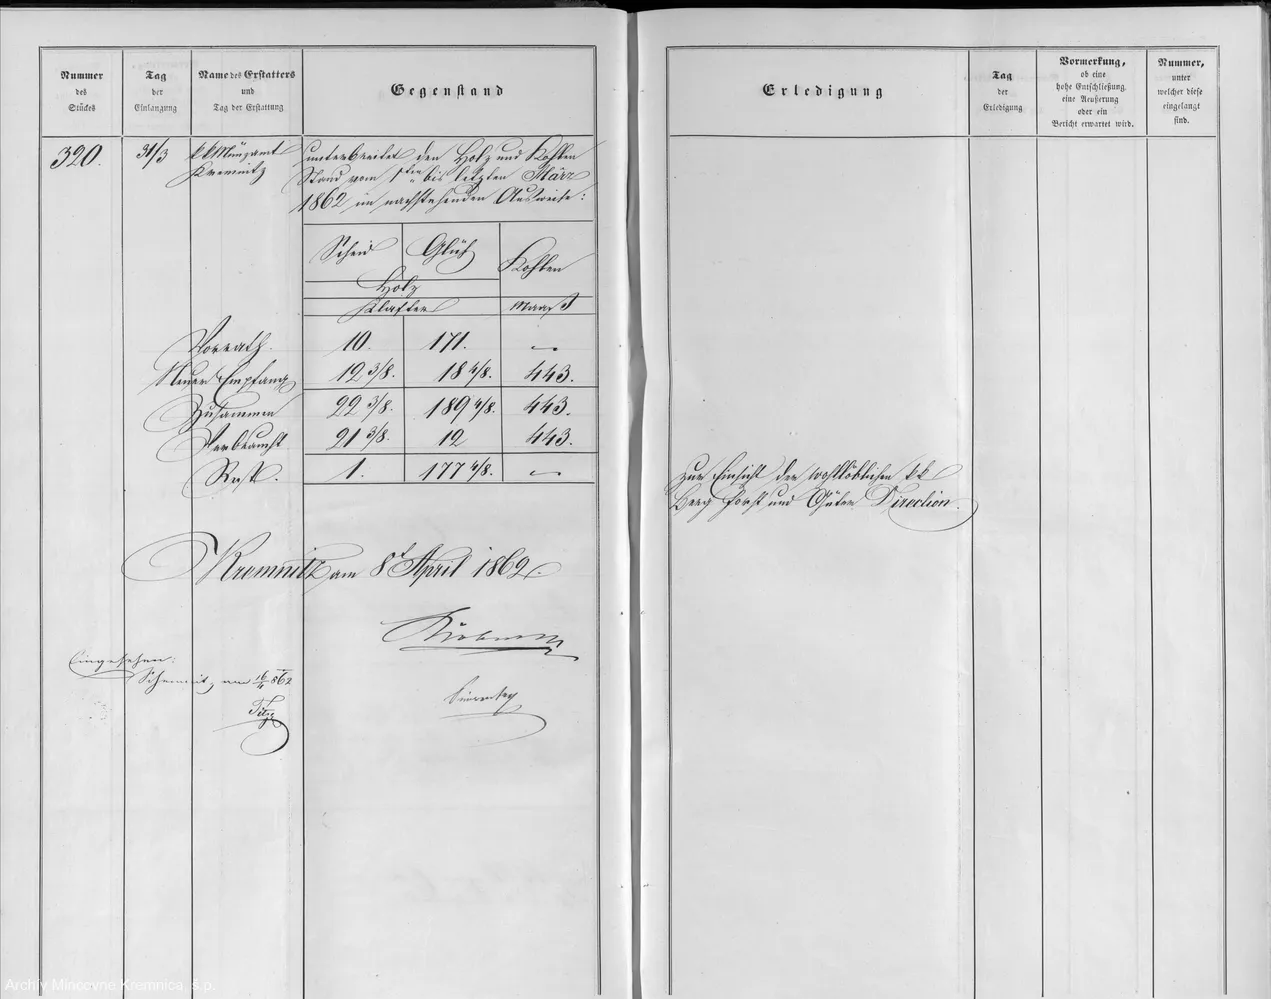 Nummer
des
Stückes
Tag
der
Einlangung
Name des Erstatters
und
Tag der Erstattung
Gegenstand
320.
31/3
k k Münzamt
Kremnitz
unterbreitet den Holz und Kohlen
Stand vom 1ten bis letzten März
1862 im nachstehenden Ausweise:
Scheid Glüh Kohlen
Holz
Klafter Maaß
Vorrath. 10. 171. —
Neuer Empfang 12 3/8. 18 4/8. 443.
Zusammen 22 3/8. 189 4/8. 443.
Verbraucht 21 3/8. 12 443.
Rest. 1. 177 4/8. —
Kremnitz am 8t April 1862.
Eingesehen:
Schemnitz am 16/4 862
Erledigung
Tag
der
Erledigung
Vormerkung,
ob eine
hohe Entschließung
eine Aeußerung
oder ein
Bericht erwartet wird.
Nummer,
unter
welcher diese
eingelangt
sind.
Zur Einsicht der wohllöblichen k k
Berg Forst und Güter Direction.
Archív Mincovne Kremnica, š.p.